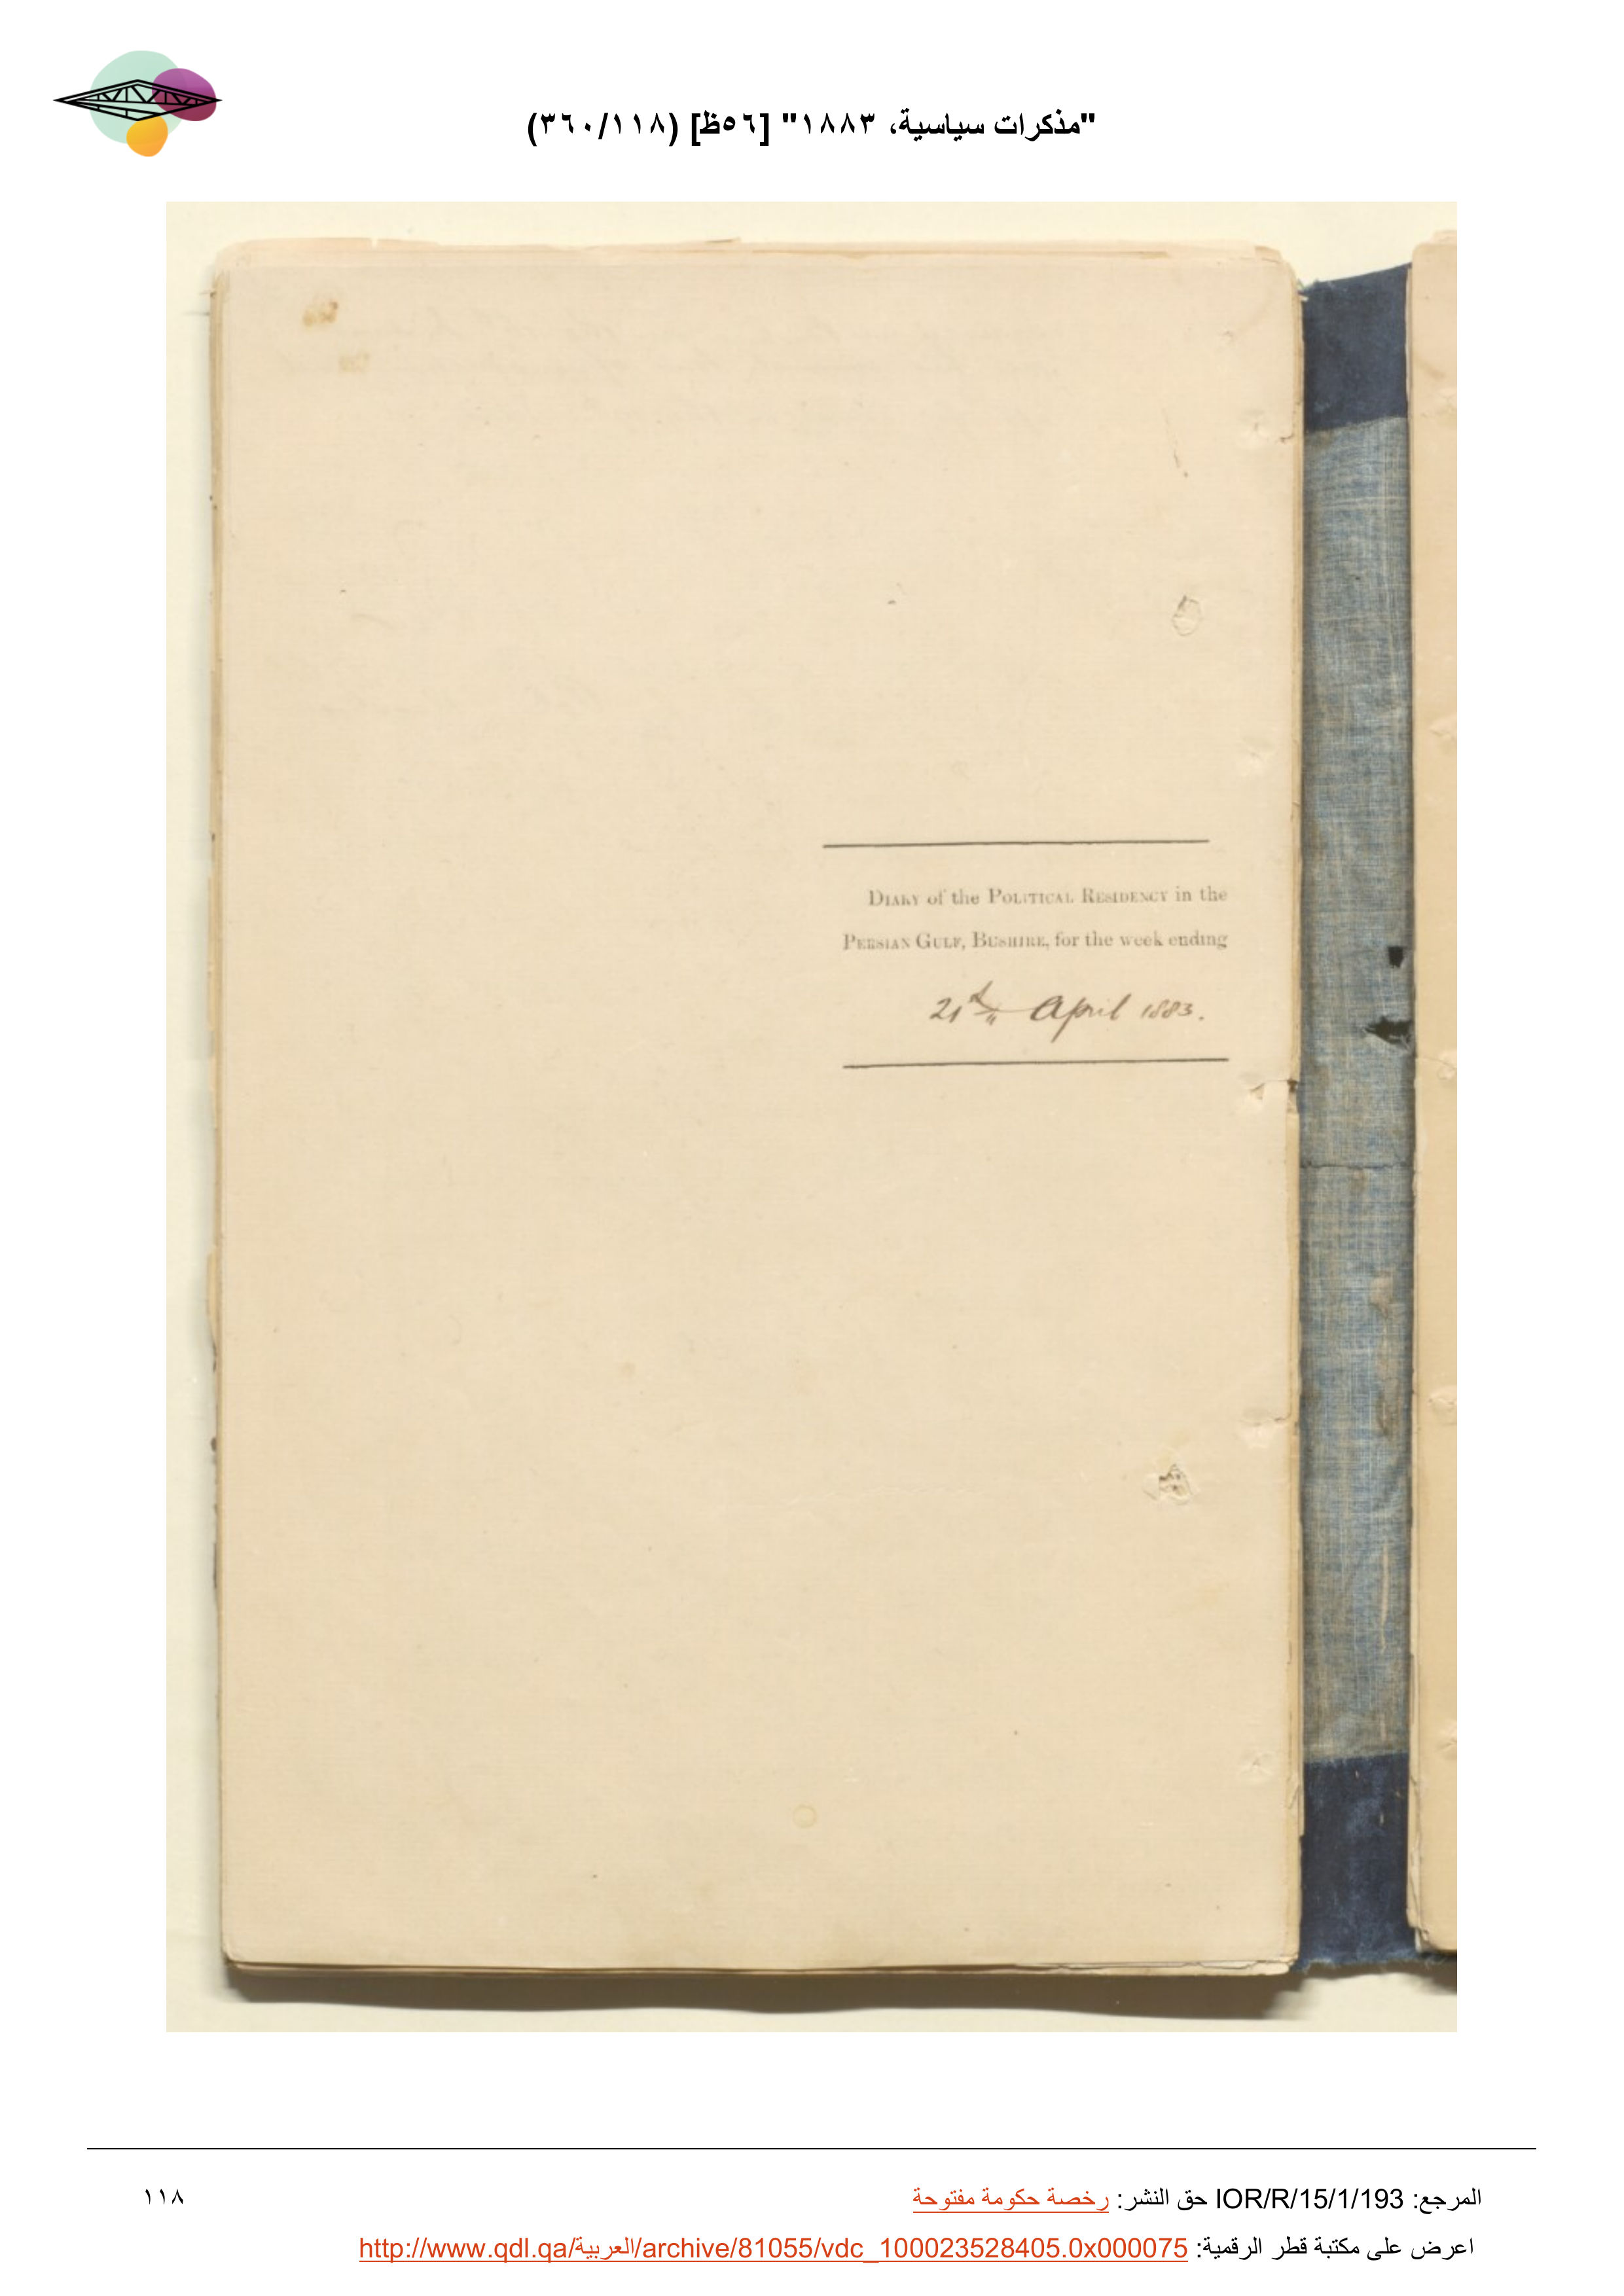 "مذكرات سياسية، ١٨٨٣" [٥٦ظ] (٣٦٠/١١٨)
DIARY of the POLITICAL RESIDENCY in the
PERSIAN GULF, BUSHIRE, for the week ending
21st April 1883.
المرجع: IOR/R/15/1/193 حق النشر: رخصة حكومة مفتوحة
١١٨
اعرض على مكتبة قطر الرقمية: http://www.qdl.qa/العربية/archive/81055/vdc_100023528405.0x000075